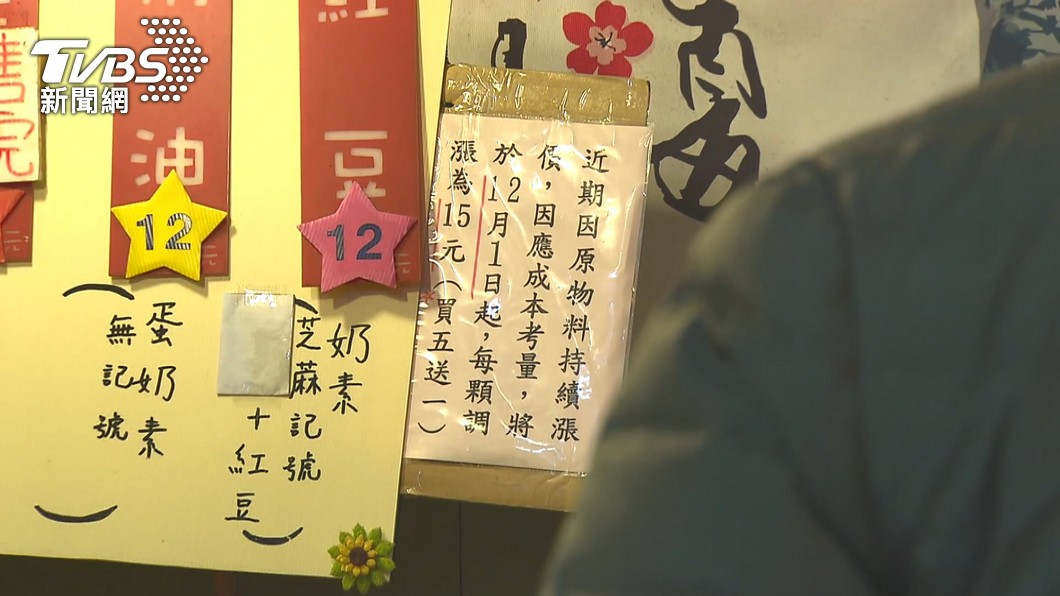 TVBS
新聞網
近期因原物料持續漲
價，因應成本考量，將
於12月1日起，每顆調
漲為15元（買五送一）
紅豆
12
元
奶素
（芝蔴記號
＋紅豆）
油
12
元
蛋奶素
（無記號）
售完